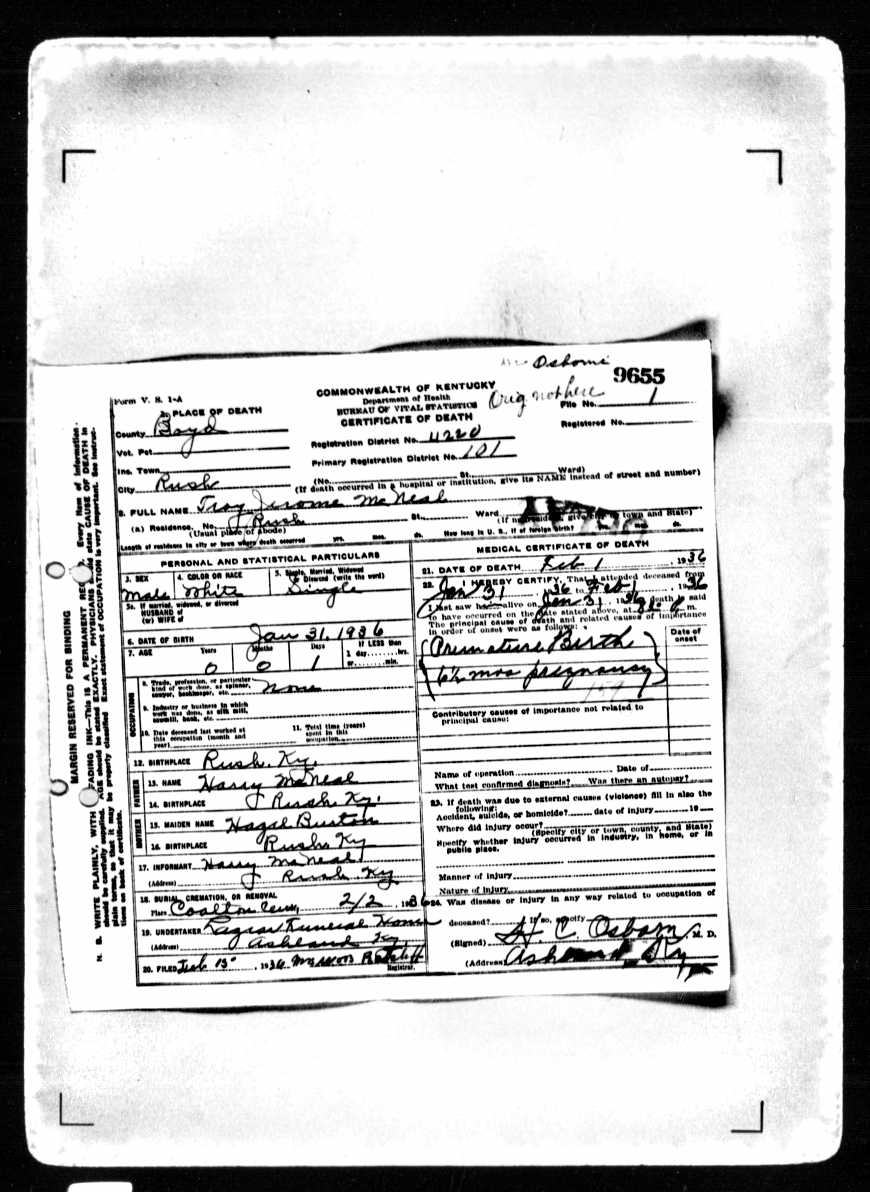 Osborne
9655
Orig not here
Form V. S. 1-A
COMMONWEALTH OF KENTUCKY
Department of Health
BUREAU OF VITAL STATISTICS
CERTIFICATE OF DEATH
File No. 1
Registered No.
1. PLACE OF DEATH
County Boyd
Vot. Pct.
Inc. Town
City Rush
Registration District No. 4220
Primary Registration District No. 101
(No. St. Ward)
(If death occurred in a hospital or institution, give its NAME instead of street and number)
2. FULL NAME Troy Jerome McNeal
(a) Residence. No. Rush St., Ward
(Usual place of abode) (If nonresident give city or town and State)
Length of residence in city or town where death occurred yrs. mos. ds. How long in U. S., if of foreign birth? mos. ds.
PERSONAL AND STATISTICAL PARTICULARS
3. SEX Male
4. COLOR OR RACE White
5. Single, Married, Widowed or Divorced (write the word) Single
5a. If married, widowed, or divorced
HUSBAND of
(or) WIFE of
6. DATE OF BIRTH Jan 31, 1936
7. AGE Years 0 Months 0 Days 1 If LESS than 1 day hrs. or min.
OCCUPATION
8. Trade, profession, or particular kind of work done, as spinner, sawyer, bookkeeper, etc. None
9. Industry or business in which work was done, as silk mill, sawmill, bank, etc.
10. Date deceased last worked at this occupation (month and year)
11. Total time (years) spent in this occupation
12. BIRTHPLACE Rush, Ky.
FATHER
13. NAME Harry McNeal
14. BIRTHPLACE Rush Ky.
MOTHER
15. MAIDEN NAME Hazel Burton
16. BIRTHPLACE Rush Ky
17. INFORMANT Harry McNeal
(Address) Rush Ky
18. BURIAL, CREMATION, OR REMOVAL
Place Coalton Cem, 2/2, 1936
19. UNDERTAKER Funeral Home
(Address) Ashland Ky
20. FILED Feb 15, 1936 Registrar.
MEDICAL CERTIFICATE OF DEATH
21. DATE OF DEATH Feb 1, 1936
22. I HEREBY CERTIFY, That I attended deceased from
Jan 31, 1936 to Feb 1, 1936
I last saw h alive on Jan 31, 1936 death is said
to have occurred on the date stated above, at m.
The principal cause of death and related causes of importance
in order of onset were as follows:
Date of onset
Premature Birth
6½ mos pregnancy
159
Contributory causes of importance not related to
principal cause:
Name of operation Date of
What test confirmed diagnosis? Was there an autopsy?
23. If death was due to external causes (violence) fill in also the
following:
Accident, suicide, or homicide? date of injury 19
Where did injury occur?
(Specify city or town, county, and State)
Specify whether injury occurred in industry, in home, or in
public place.
Manner of injury
Nature of injury
24. Was disease or injury in any way related to occupation of
deceased? If so, specify
(Signed) H. C. Osborn, M. D.
(Address) Ashland Ky
MARGIN RESERVED FOR BINDING